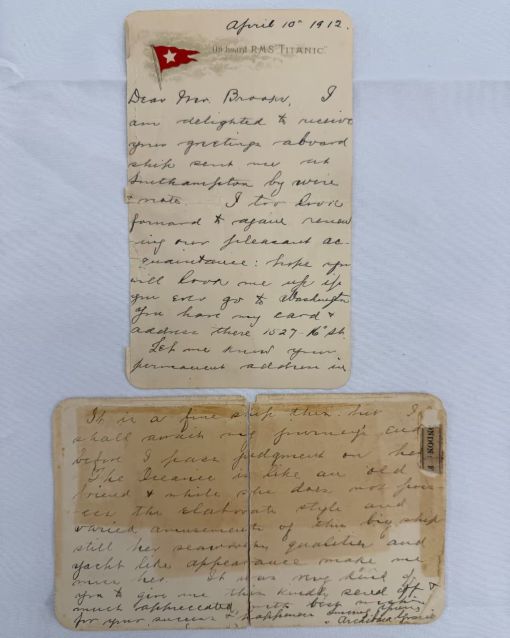 April 10th 1912.
On board R.M.S. "TITANIC"
Dear Mr. I
am delighted to receive
your greetings aboard
ship sent me at
Southampton by wire
& note. I too look
forward to again renew
ing our pleasant ac-
quaintance: hope you
will look me up if
you ever go to Washington
You have my card &
address there 1527-16th St.
Let me know your
permanent address in
It is a fine ship this but I
shall await my journey's end
before I pass judgment on her
The Oceanic is like an old
friend & while she does not poss
ess the elaborate style and
varied amusements of this big ship
still her seaworthy qualities and
yacht like appearance make me
miss her It was very kind of
you to give me this kindly send off &
much appreciated with best wishes
for your success & happiness Sincerely Yours
Archibald Gracie